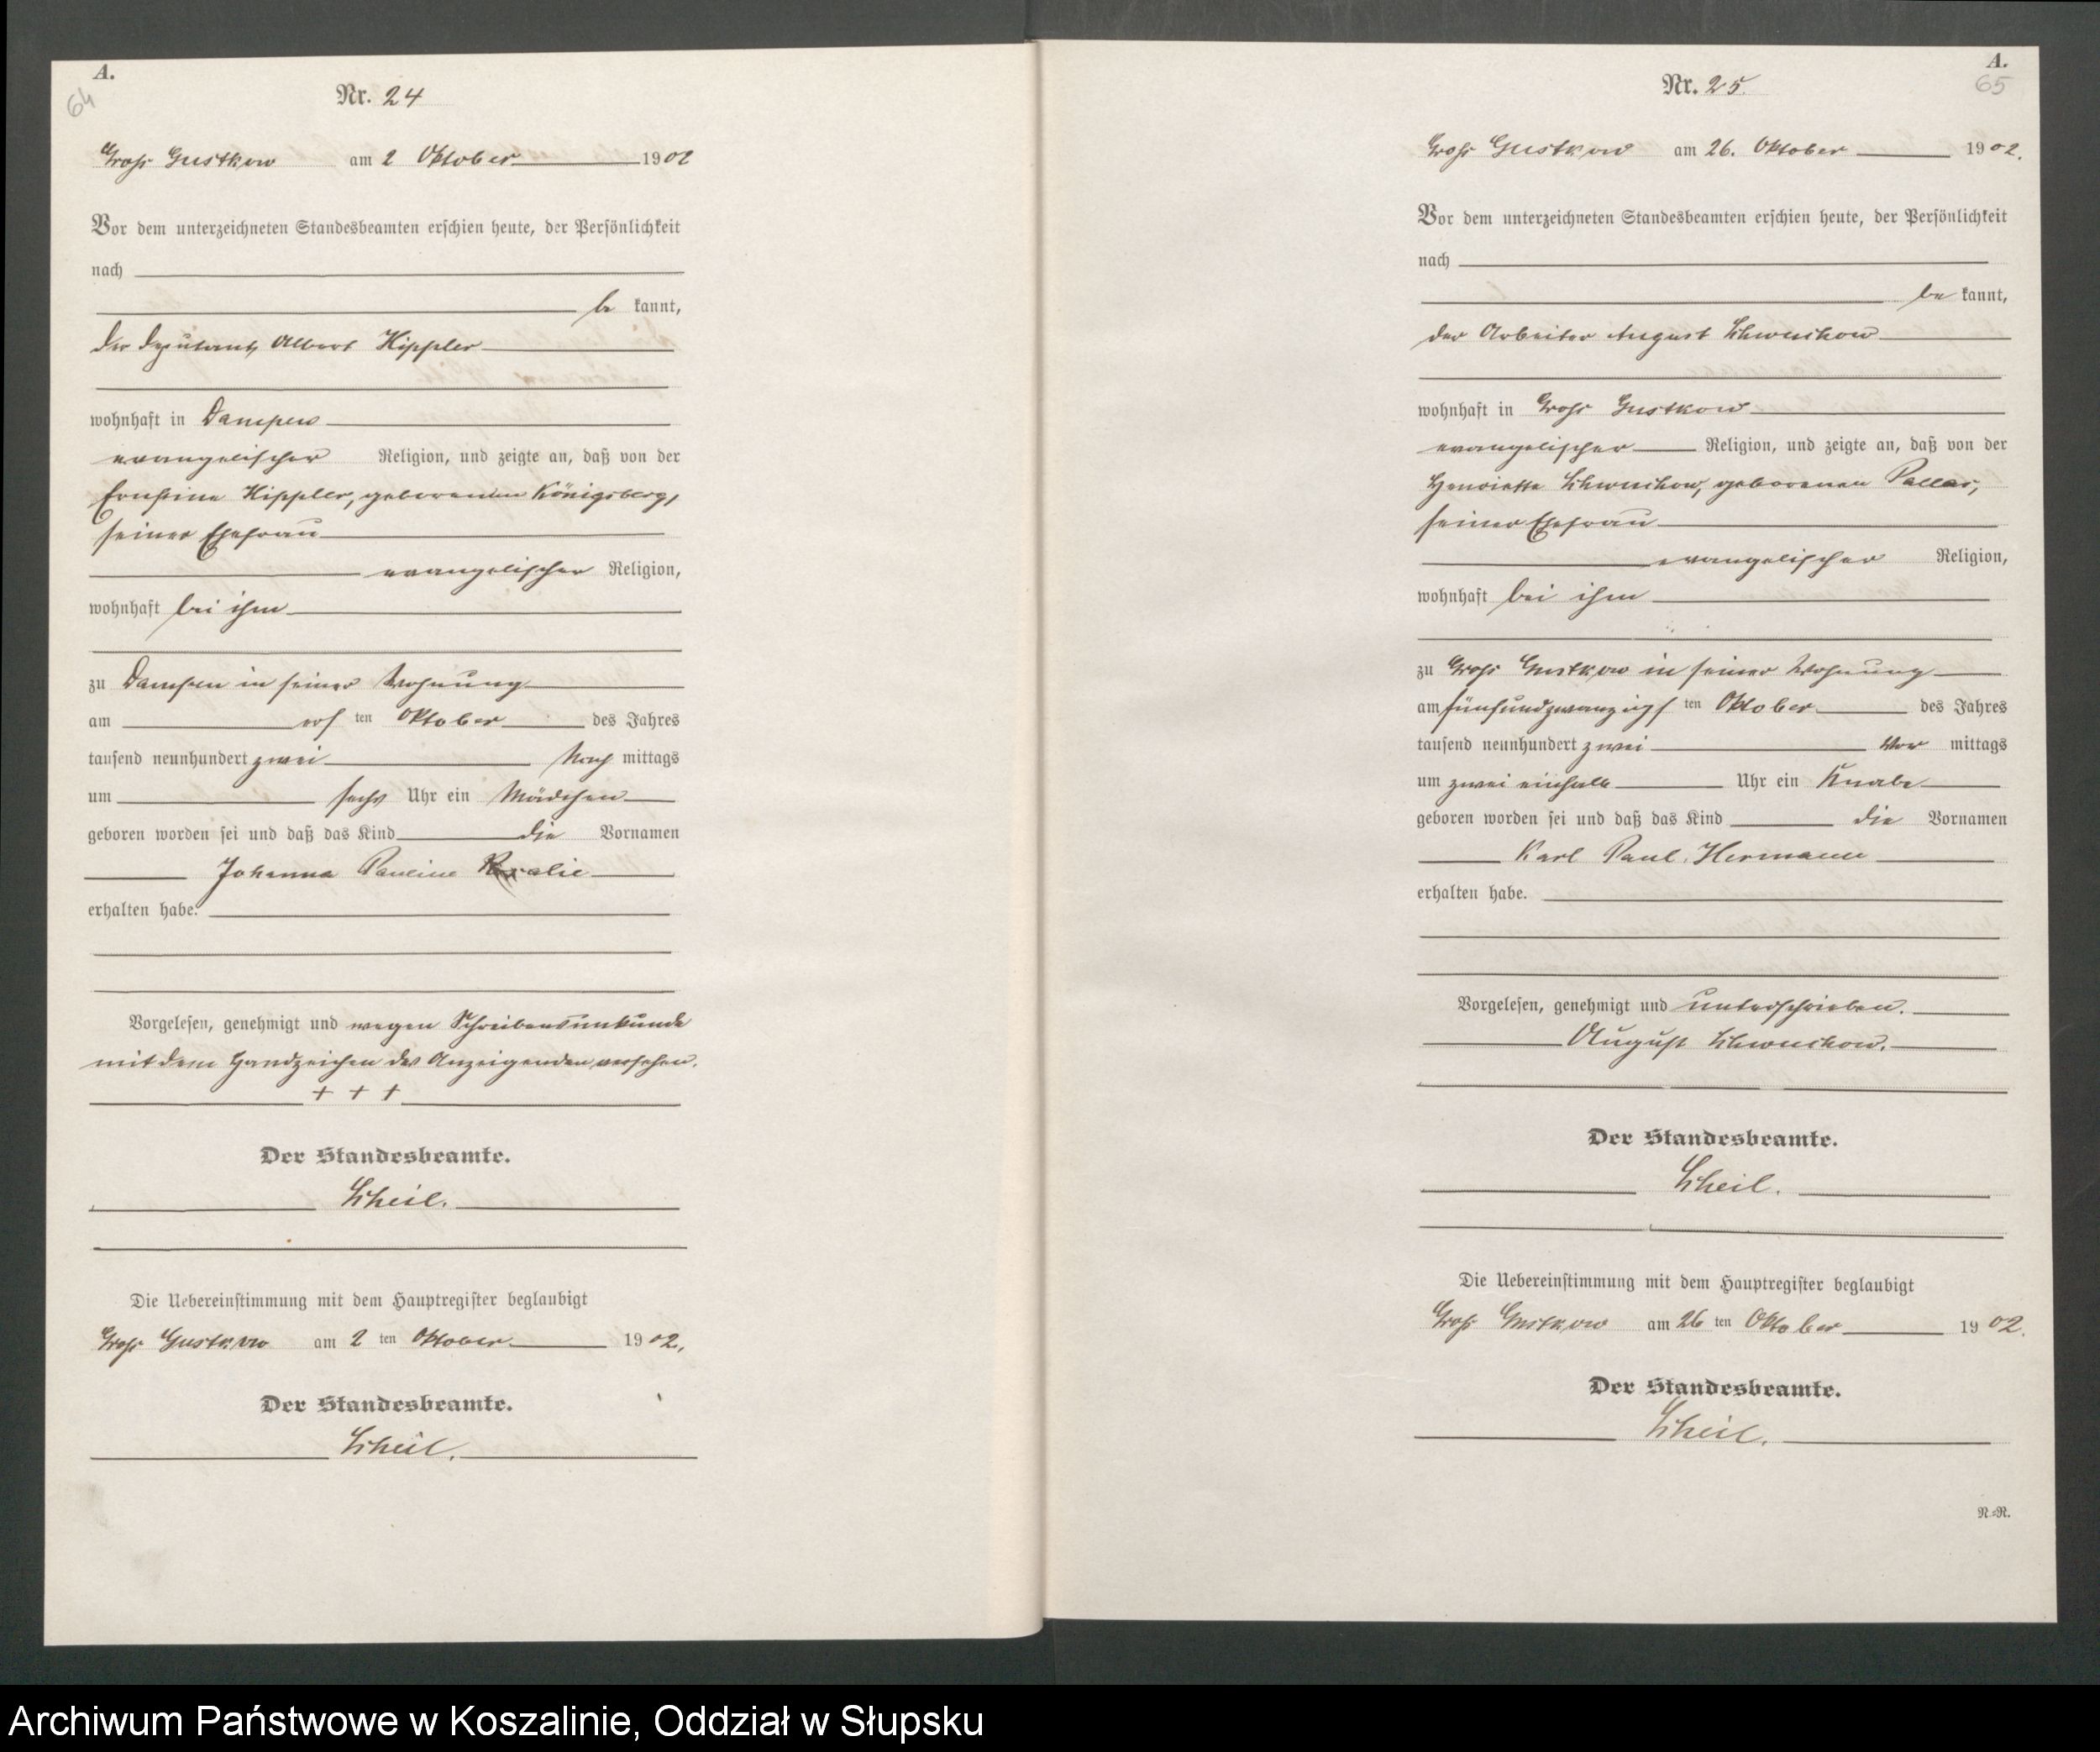 A.
64
Nr. 24
Groß Gustkow am 2 Oktober 1902
Vor dem unterzeichneten Standesbeamten erschien heute, der Persönlichkeit
nach
be kannt,
der Deputant Albert Hippler
wohnhaft in Dampen
evangelischer Religion, und zeigte an, daß von der
Ernstine Hippler, geborenen Königsberg,
seiner Ehefrau
evangelischer Religion,
wohnhaft bei ihm
zu Dampen in seiner Wohnung
am ten Oktober des Jahres
tausend neunhundert zwei Nach mittags
um sechs Uhr ein Mädchen
geboren worden sei und daß das Kind die Vornamen
Johanna Pauline
erhalten habe.
Vorgelesen, genehmigt und wegen Schreibensunkunde
mit dem Handzeichen des Anzeigenden versehen.
+ + +
Der Standesbeamte.
Scheil.
Die Uebereinstimmung mit dem Hauptregister beglaubigt
Groß Gustkow am 2 ten Oktober 1902.
Der Standesbeamte.
Scheil.
A.
65
Nr. 25.
Groß Gustkow am 26. Oktober 1902.
Vor dem unterzeichneten Standesbeamten erschien heute, der Persönlichkeit
nach
be kannt,
der Arbeiter August Schwuchow
wohnhaft in Groß Gustkow
evangelischer Religion, und zeigte an, daß von der
Henriette Schwuchow, geborenen Pallas,
seiner Ehefrau
evangelischer Religion,
wohnhaft bei ihm
zu Groß Gustkow in seiner Wohnung
am fünfundzwanzigs ten Oktober des Jahres
tausend neunhundert zwei Vor mittags
um zwei einhalb Uhr ein Knabe
geboren worden sei und daß das Kind die Vornamen
Karl Paul Hermann
erhalten habe.
Vorgelesen, genehmigt und unterschrieben.
August Schwuchow.
Der Standesbeamte.
Scheil.
Die Uebereinstimmung mit dem Hauptregister beglaubigt
Groß Gustkow am 26 ten Oktober 1902.
Der Standesbeamte.
Scheil.
N.=N.
Archiwum Państwowe w Koszalinie, Oddział w Słupsku